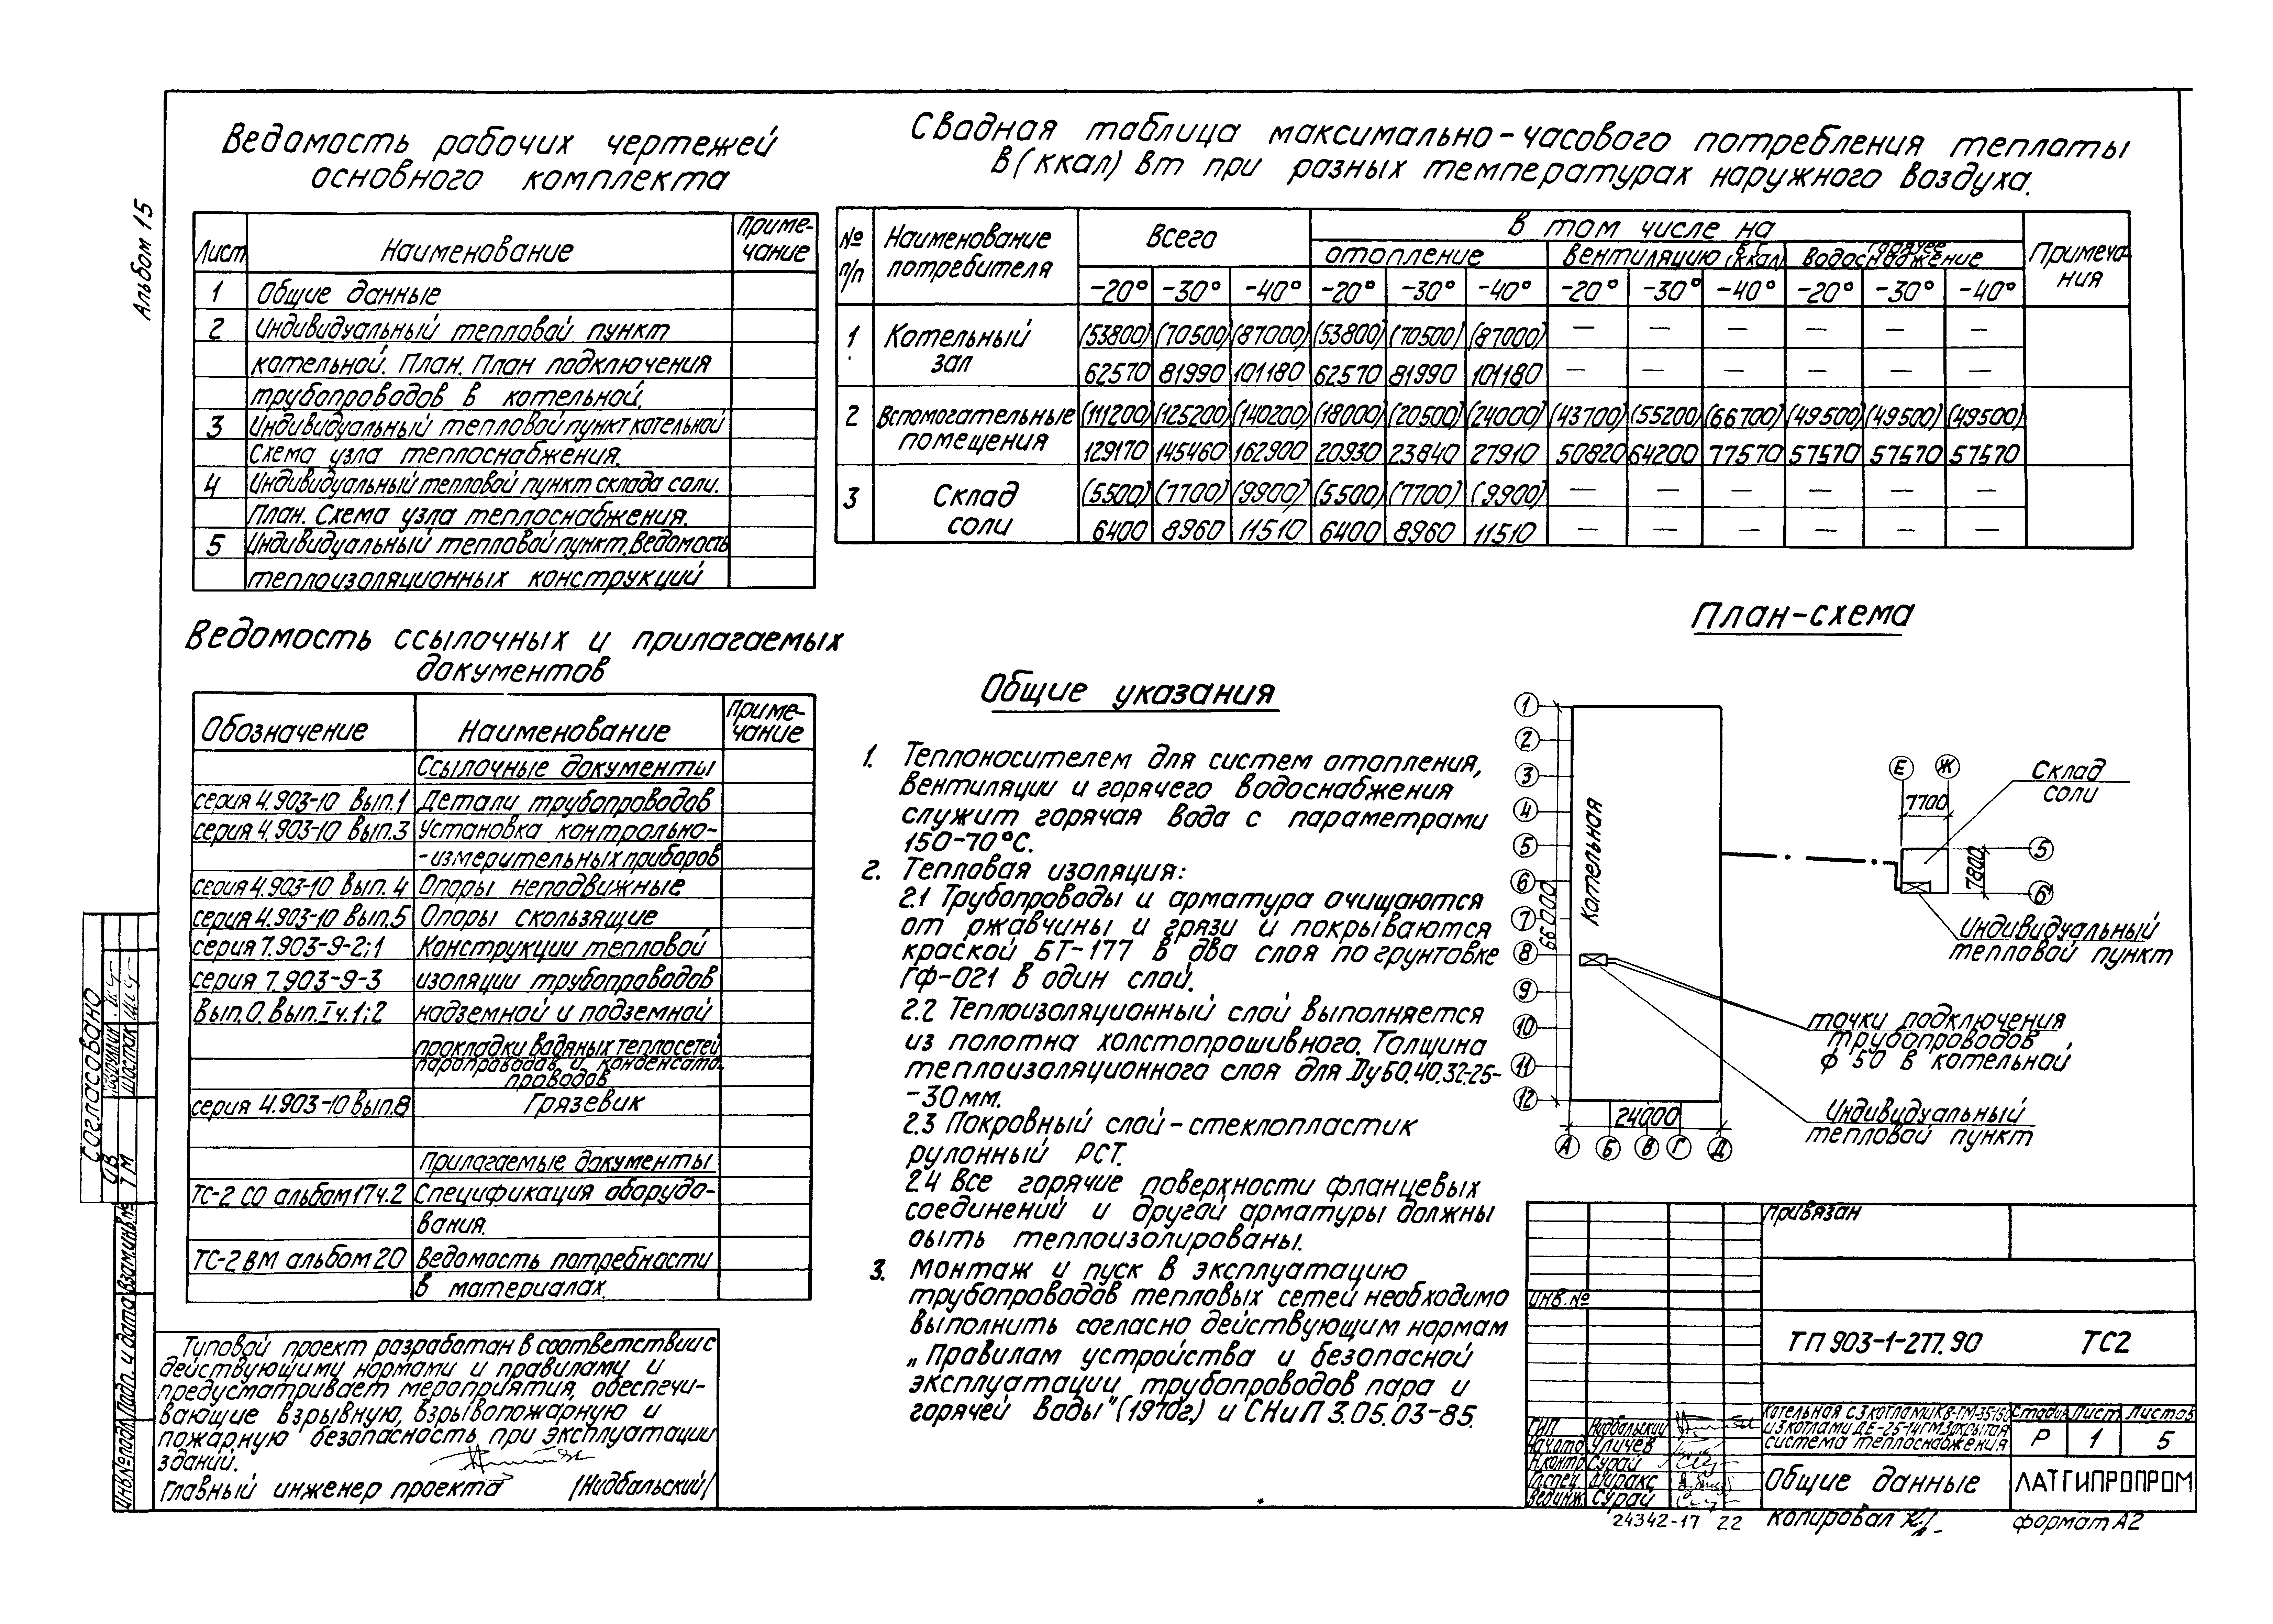 Альбом 15
Ведомость рабочих чертежей
основного комплекта
Лист Наименование Приме-
чание
1 Общие данные
2 Индивидуальный тепловой пункт
котельной. План. План подключения
трубопроводов в котельной.
3 Индивидуальный тепловой пункт котельной
Схема узла теплоснабжения.
4 Индивидуальный тепловой пункт склада соли.
План. Схема узла теплоснабжения.
5 Индивидуальный тепловой пункт. Ведомость
теплоизоляционных конструкций
Сводная таблица максимально-часового потребления теплоты
в (ккал) Вт при разных температурах наружного воздуха.
№ п/п Наименование потребителя Всего В том числе на Примеча-
ния
отопление вентиляцию горячее водоснабжение
-20° -30° -40° -20° -30° -40° -20° -30° -40° -20° -30° -40°
1 Котельный (53800) (70500) (87000) (53800) (70500) (87000) — — — — — —
зал 62570 81990 101180 62570 81990 101180 — — — — — —
2 Вспомогательные (111200) (125200) (140200) (18000) (20500) (24000) (43700) (55200) (66700) (49500) (49500) (49500)
помещения 129170 145460 162900 20930 23840 27910 50820 64200 77570 57570 57570 57570
3 Склад (5500) (7700) (9900) (5500) (7700) (9900) — — — — — —
соли 6400 8960 11510 6400 8960 11510 — — — — — —
Ведомость ссылочных и прилагаемых
документов
Обозначение Наименование Приме-
чание
Ссылочные документы
серия 4.903-10 Вып.1 Детали трубопроводов
серия 4.903-10 Вып.3 Установка контрольно-
-измерительных приборов
серия 4.903-10 Вып.4 Опоры неподвижные
серия 4.903-10 Вып.5 Опоры скользящие
серия 7.903-9-2;1 Конструкции тепловой
серия 7.903-9-3 изоляции трубопроводов
Вып.0. Вып.I ч.1;2 надземной и подземной
прокладки водяных теплосетей
паропроводов и конденсато-
проводов
серия 4.903-10 вып.8 Грязевик
Прилагаемые документы
ТС-2 СО альбом 17 ч.2 Спецификация оборудо-
вания.
ТС-2 ВМ альбом 20 Ведомость потребности
в материалах.
Типовой проект разработан в соответствии с
действующими нормами и правилами и
предусматривает мероприятия, обеспечи-
вающие взрывную, взрывопожарную и
пожарную безопасность при эксплуатации
зданий.
Главный инженер проекта /Нидбальский/
Общие указания
1. Теплоносителем для систем отопления,
вентиляции и горячего водоснабжения
служит горячая вода с параметрами
150-70°С.
2. Тепловая изоляция:
2.1 Трубопроводы и арматура очищаются
от ржавчины и грязи и покрываются
краской БТ-177 в два слоя по грунтовке
ГФ-021 в один слой.
2.2 Теплоизоляционный слой выполняется
из полотна холстопрошивного. Толщина
теплоизоляционного слоя для Ду50,40,32,25-
-30мм.
2.3 Покровный слой-стеклопластик
рулонный РСТ.
2.4 Все горячие поверхности фланцевых
соединений и другой арматуры должны
быть теплоизолированы.
3. Монтаж и пуск в эксплуатацию
трубопроводов тепловых сетей необходимо
выполнить согласно действующим нормам
„Правилам устройства и безопасной
эксплуатации трубопроводов пара и
горячей воды" (1970г.) и СНиП 3.05.03-85.
План-схема
1
2
3
4
5
6
7
8
9
10
11
12
66000
Котельная
24000
А Б В Г Д
Е Ж
7700
Склад
соли
5
7800
6
Индивидуальный
тепловой пункт
точки подключения
трубопроводов
ф 50 в котельной
Индивидуальный
тепловой пункт
Привязан
инв.№
ТП 903-1-277.90 ТС2
Котельная с 3 котлами КВ-ГМ-35-150
и 3 котлами ДЕ-25-14ГМ. Закрытая
система теплоснабжения
Стадия Лист Листов
Р 1 5
ГИП Нидбальский
Нач.отд Уличев
Н.контр Сурай
Гл.спец.
Вед.инж. Сурай
Общие данные
ЛАТГИПРОПРОМ
24342-17 22
Копировал
формат А2
Согласовано
ОВ
ТМ Шостак
Инв.№подл. Подп. и дата Взам.инв.№